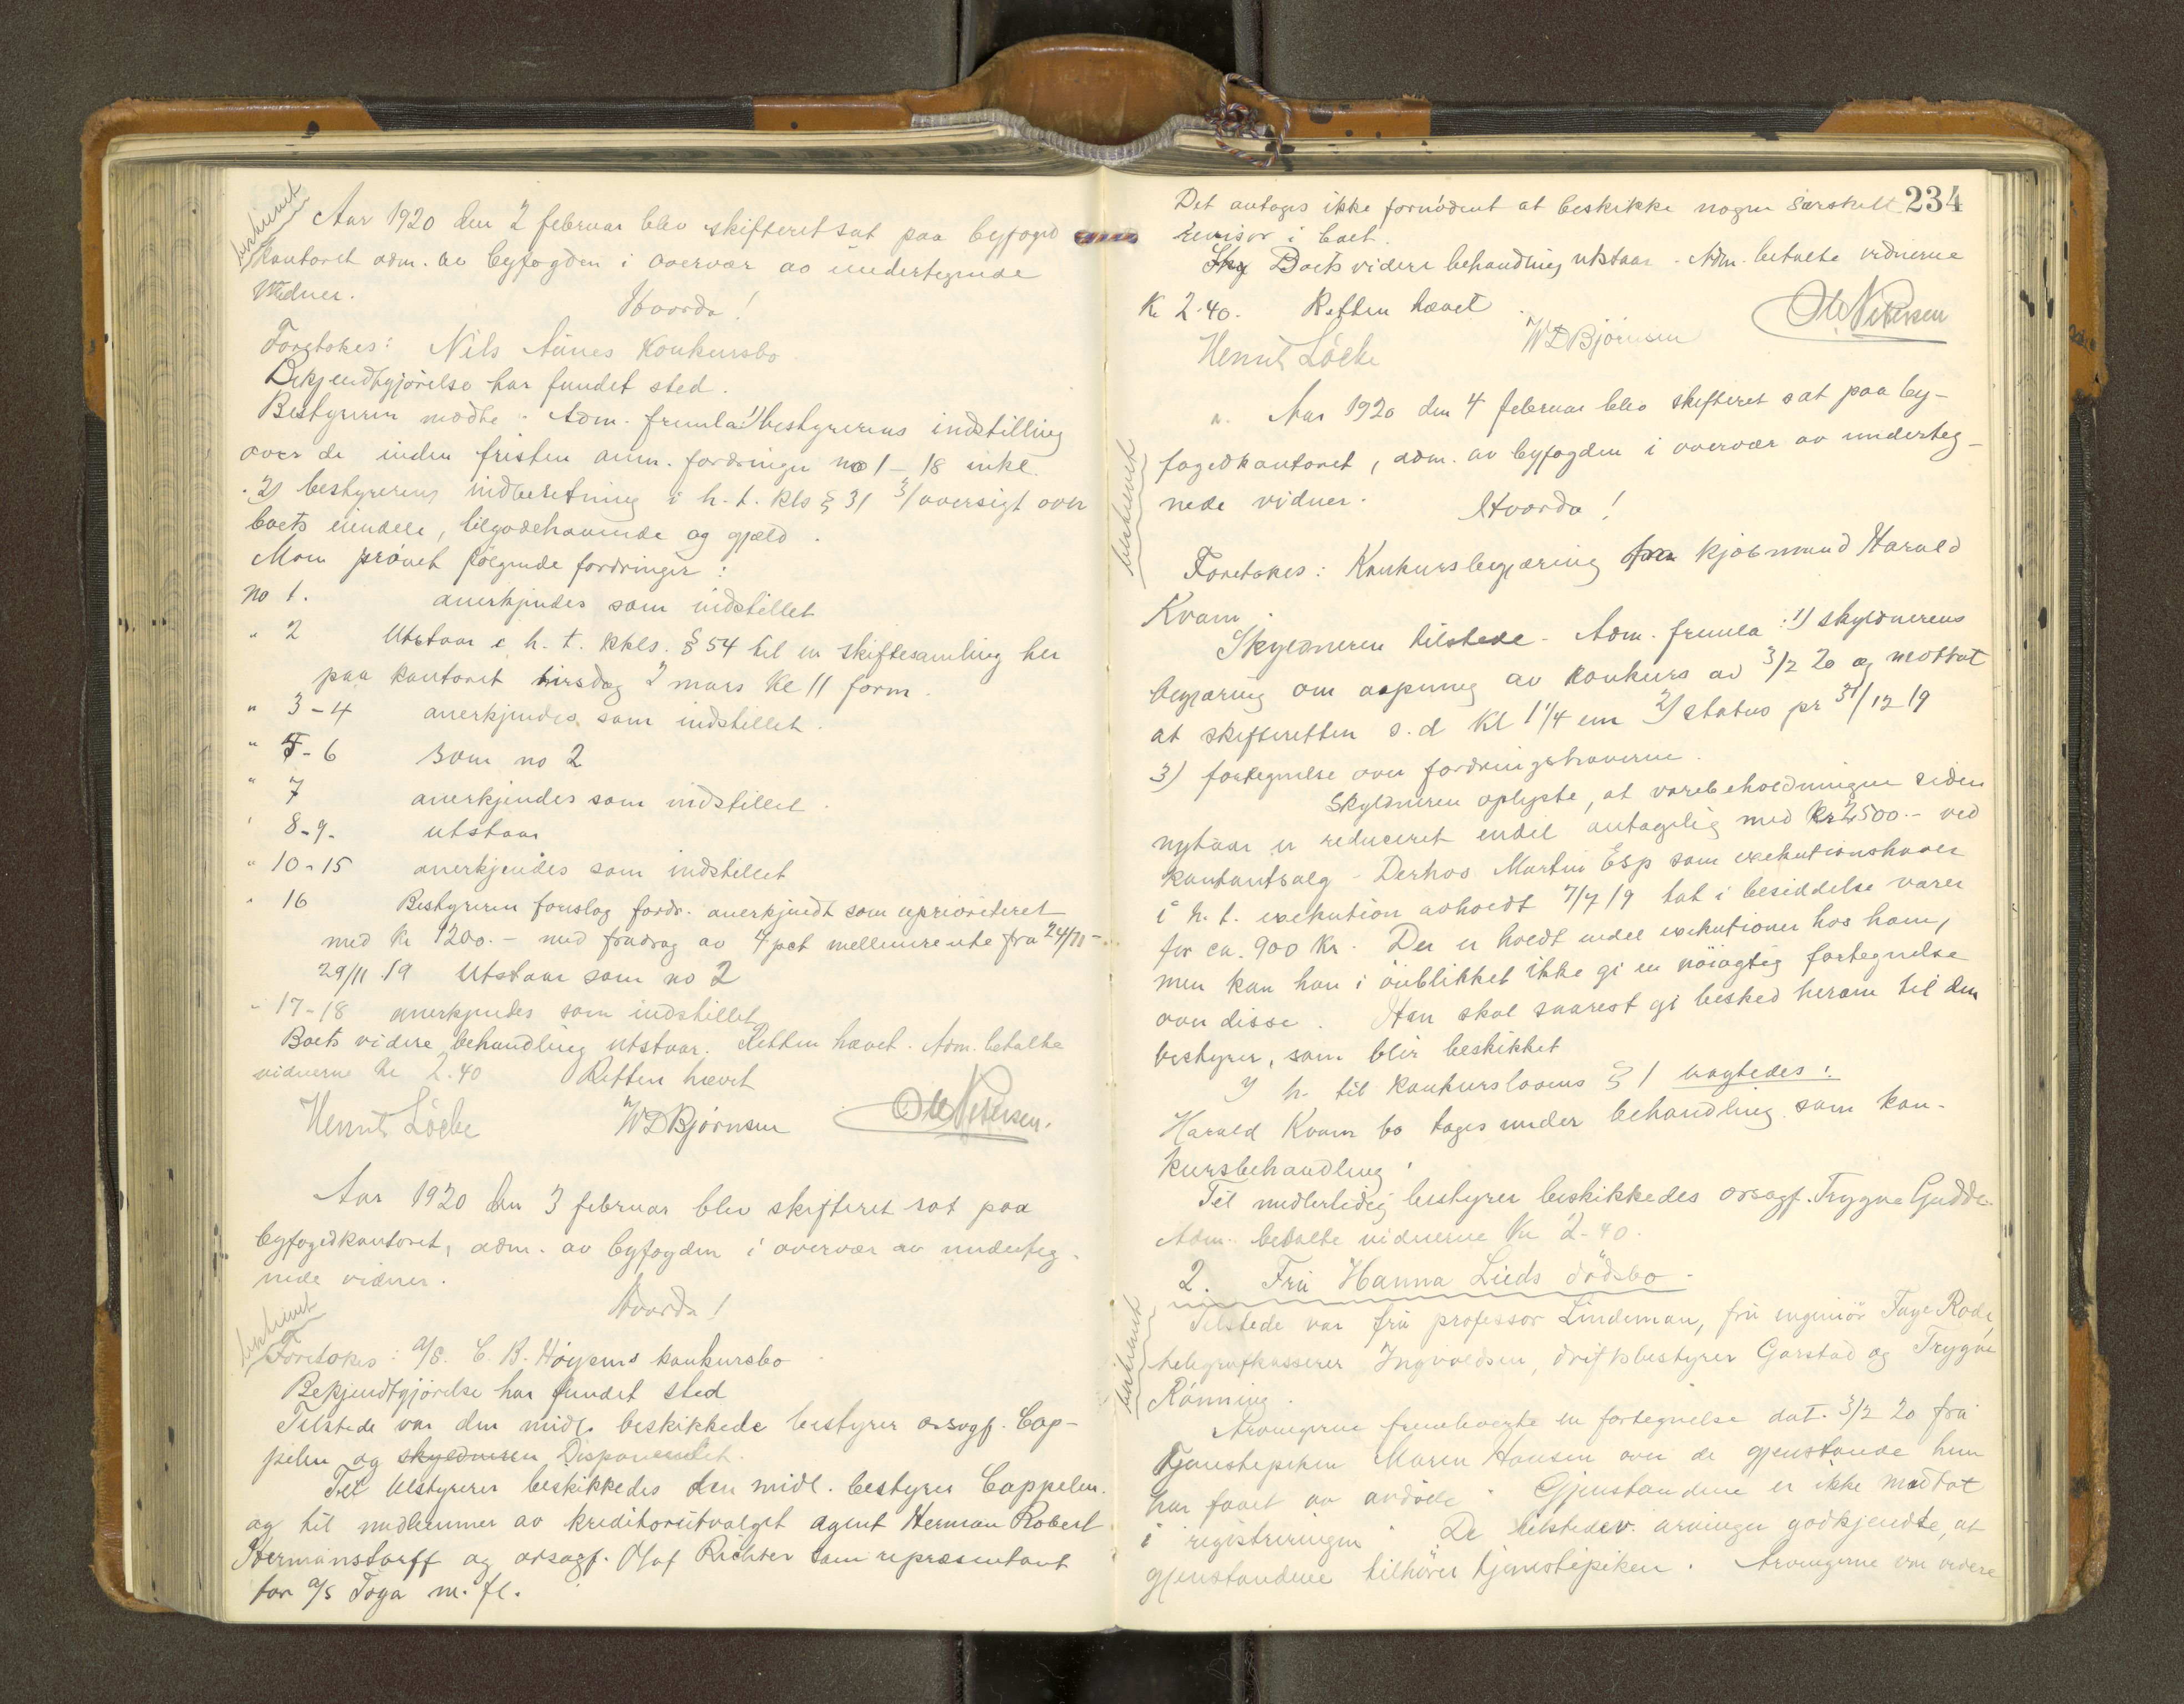 beskrevet
Aar 1920 den 2 februar blev skifteret sat paa byfogd
kontoret adm. av byfogden i overvær av undertegnede
vidner.
Hvorda!
Foretokes: Nils Aunes Konkursbo.
Bekjendtgjörelse har fundet sted.
Bestyreren mødte. Adm. fremla: 1) bestyrerens indstilling
over de inden fristen anm. fordringer no 1 - 18 inkl.
2) bestyrerens indberetning i h. t. kls § 31 3) oversigt over
boets eiendele, tilgodehavende og gjæld.
Man prövet fölgende fordringer:
no 1. anerkjendes som indstillet
" 2 Utstaar i h. t. kkls. § 54 til en skiftesamling her
paa kontoret tirsdag 2 mars Kl 11 form.
" 3 - 4 anerkjendes som indstillet.
" 5 - 6 som no 2
" 7 anerkjendes som indstillet.
" 8 - 9 - utstaar
" 10 - 15 anerkjendes som indstillet
" 16 Bestyreren foreslog fordr. anerkjendt som uprioriteret
med kr 1200.- med fradrag av 4 pct mellemrente fra 24/10 -
29/11 19 Utstaar som no 2
" 17-18 anerkjendes som indstillet
Boets videre behandling utstaar. Retten hævet. Adm. betalte
vidnerne kr 2.40 Retten hævet
Henrik Löcke W D Bjørnsen Ole Petersen.
Aar 1920 den 3 februar blev skifteret sat paa
byfogedkontoret, adm. av byfogden i overvær av underteg-
nede vidner.
Hvorda!
beskrevet
Foretokes: A/S. C. B. Høyems konkursbo.
Bekjendtgjörelse har fundet sted
Tilstede var den midl. beskikkede bestyrer o.r.sagf. Cap-
pelen og skyldneren Disponentet.
Til bestyrer beskikkedes den midl. bestyrer Cappelen.
og til medlemmer av kreditorutvalget agent Herman Robert
Hermanstorff og orsagf. Olaf Richter som repræsentant
for A/S Toga m. fl.
Det antages ikke fornödent at beskikke nogen særskilt 234
revisor i boet.
Boets videre behandling utstaar. Adm. betalte vidnerne
Kr 2.40. Retten hævet.
Henrik Löcke W D Bjørnsen Ole Petersen
Aar 1920 den 4 februar blev skifteret sat paa by-
fogedkontoret, adm. av byfogden i overvær av underteg-
nede vidner.
Hvorda!
beskrevet
Foretokes: Konkursbegjæring fra kjøbmand Harald
Kvam.
Skyldneren tilstede - Adm. fremla: 1) skyldnerens
begjæring om aapning av konkurs av 3/2 20 og mottat
at skifteretten s. d Kl 1 1/4 em 2) status pr 31/12 19
3) fortegnelse over fordringshaverne.
Skyldneren oplyste, at varebeholdningen siden
nytaar er reduceret endel antagelig med Kr 2500.- ved
kontantsalg - Derhos Martin Esp som exekutionshaver
i h. t. exekution avholdt 7/7 19 tat i besiddelse varer
for ca. 900 Kr. Der er holdt endel exekutioner hos ham,
men kan han i öieblikket ikke gi en nöiagtig fortegnelse
over disse. Han skal snarest gi besked herom til den
bestyrer, som blir beskikket
I h. til konkurslovens § 1 vagtedes:
Harald Kvam bo tages under behandling som kon-
kursbehandling.
Til midlertidig bestyrer beskikkedes orsagf. Trygve Gudde.
Adm. betalte vidnerne Kr 2.40.
2. Frü Hanna Lieds dödsbo.
beskrevet
Tilstede var frü professor Lindeman, frü ingeniör Tage Rode,
telegrafkasserer Ingvaldsen, driftsbestyrer Garstad og Trygve
Rönning.
Arvingerne fremla en fortegnelse dat. 3/2 20 fra
Tjenestepiken Maren Hansen over de gjenstande hun
har faaet av avdöde. Gjenstandene er ikke medtat
i registreringen. De tilstedev. arvinger godkjendte, at
gjenstandene tilhörer tjenestepiken. Arvingerne var videre